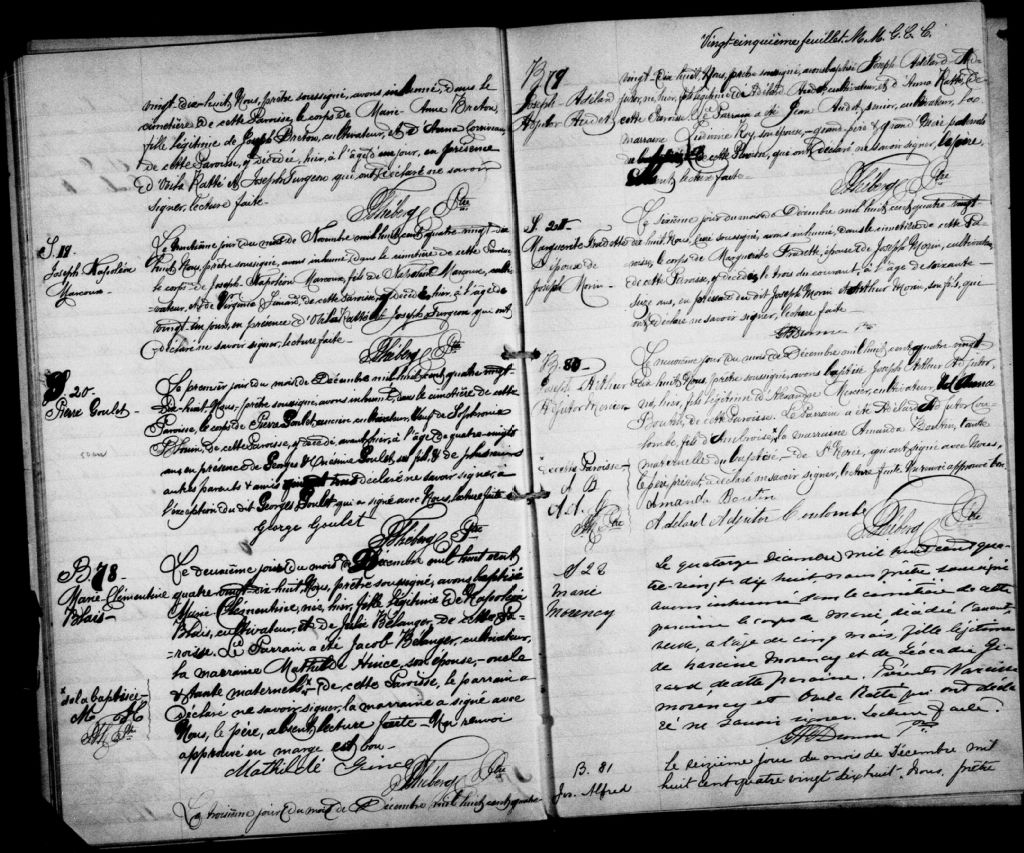 vingt-dix-huit, Nous, prêtre soussigné, avons inhumé, dans le
cimetière de cette Paroisse, le corps de Marie Anne Breton,
fille légitime de Joseph Breton, cultivateur, et d'Anna
de cette Paroisse, décédée, hier, à l'âge d'un jour, en présence
d' Ratté et Joseph Turgeon qui ont déclaré ne savoir
signer, lecture faite.
Ptre
S. 19.
Joseph Napoléon
Le jour du mois de Novembre mil huit cent quatre vingt-dix
huit, Nous, prêtre soussigné, avons inhumé dans le cimetière de cette Paroisse
le corps de Joseph Napoléon, fils de
vateur, et de Virginie de cette Paroisse, décédé, hier, à l'âge de
vingt un jours, en présence d' Ratté et Joseph Turgeon qui ont
déclaré ne savoir signer, lecture faite.
Ptre
S 20.
Pierre Goulet
Le premier jour du mois de Décembre mil huit cent quatre vingt-
dix-huit, Nous, prêtre soussigné, avons inhumé, dans le cimetière de cette
Paroisse, le corps de Pierre Goulet, ancien cultivateur, veuf de Sophronie
de cette Paroisse, décédé, avant hier, à l'âge de quatre-vingts
ans, en présence de Georges et Onésime Goulet ses fils, et de plusieurs
autres parents & amis qui ont tous déclaré ne savoir signer, à
l'exception du dit Georges Goulet qui a signé avec Nous, lecture faite
George Goulet
Ptre
B 78.
Marie-Clémentine
Blais
Le deuxième jour du mois de Décembre mil huit cent
quatre vingt-dix-huit, Nous, prêtre soussigné, avons baptisé
Marie Clémentine, née, hier, fille légitime de Napoléon
Blais, cultivateur, et de Julie Bélanger, de cette Pa-
roisse. Le Parrain a été Jacob Bélanger, cultivateur,
la marraine Mathilde son épouse, oncle
& tante maternels x de cette Paroisse, le parrain a
déclaré ne savoir signer, la marraine a signé avec
Nous, le père, absent, lecture faite. Un renvoi
approuvé en marge est bon.
x de la baptisée
Mathilde
Ptre
Le troisième jour du mois de Décembre mil huit cent quatre
Vingt-cinquième feuillet. M. M. C. C. C.
B 79
Joseph-Adélard
Adjutor Audet
vingt-dix huit, Nous, prêtre soussigné, avons baptisé Joseph Adélard Ad-
jutor, né, hier, fils légitime de Adélard Audet, cultivateur, et d'Anna Ratté, de
cette Paroisse. Le Parrain a été Jean Audet, cultivateur, la
marraine Roy, son épouse, grand-père & grand'mère paternels
de cette Paroisse, qui ont déclaré ne savoir signer, le père,
lecture faite.
Ptre
S.
Marguerite
Épouse de
Joseph Morin
Le sixième jour du mois de Décembre mil huit cent quatre vingt
dix huit, Nous, soussigné, avons inhumé, dans le cimetière de cette Pa-
roisse, le corps de Marguerite, épouse de Joseph Morin, cultivateur
de cette Paroisse, décédée, le trois du courant, à l'âge de soixante-
seize ans, en présence du dit Joseph Morin & Arthur Morin, son fils, qui
ont déclaré ne savoir signer, lecture faite.
Ptre
B. 80
Joseph Arthur
Adjutor Mercier
Le neuvième jour du mois de Décembre mil huit cent quatre vingt
dix huit, Nous, prêtre soussigné, avons baptisé Joseph Arthur Adjutor,
né, hier, fils légitime d'Alexandre Mercier, cultivateur, et d'Anna
Boutin, de cette Paroisse. Le Parrain a été Adélard Adjutor Cou-
lombe, fils d'Ambroise, x la marraine Amanda Boutin, tante
maternelle du baptisé, de St qui ont signé avec Nous,
le père, présent, a déclaré ne savoir signer, lecture faite. Un renvoi approuvé bon.
x de cette Paroisse
A B
A. A. C
Ptre
Amanda Boutin
Adélard Adjutor Coulombe
Ptre
S 22
Marie
Morency
Le quatorze Décembre mil huit cent qua-
tre-vingt dix huit nous prêtre soussigné
avons inhumé dans le cimetière de cette
paroisse le corps de Marie, décédée l'avant
veille, à l'âge de cinq mois, fille légitime
de Narcisse Morency et de Léocadie Gi-
rard, de cette paroisse. Présents Narcisse
Morency et Ratté, qui ont décla-
ré ne savoir signer. Lecture faite.
Ptre
B. 81
Jos. Alfred
Le seizième jour du mois de Décembre mil
huit cent quatre vingt dix huit. Nous, prêtre